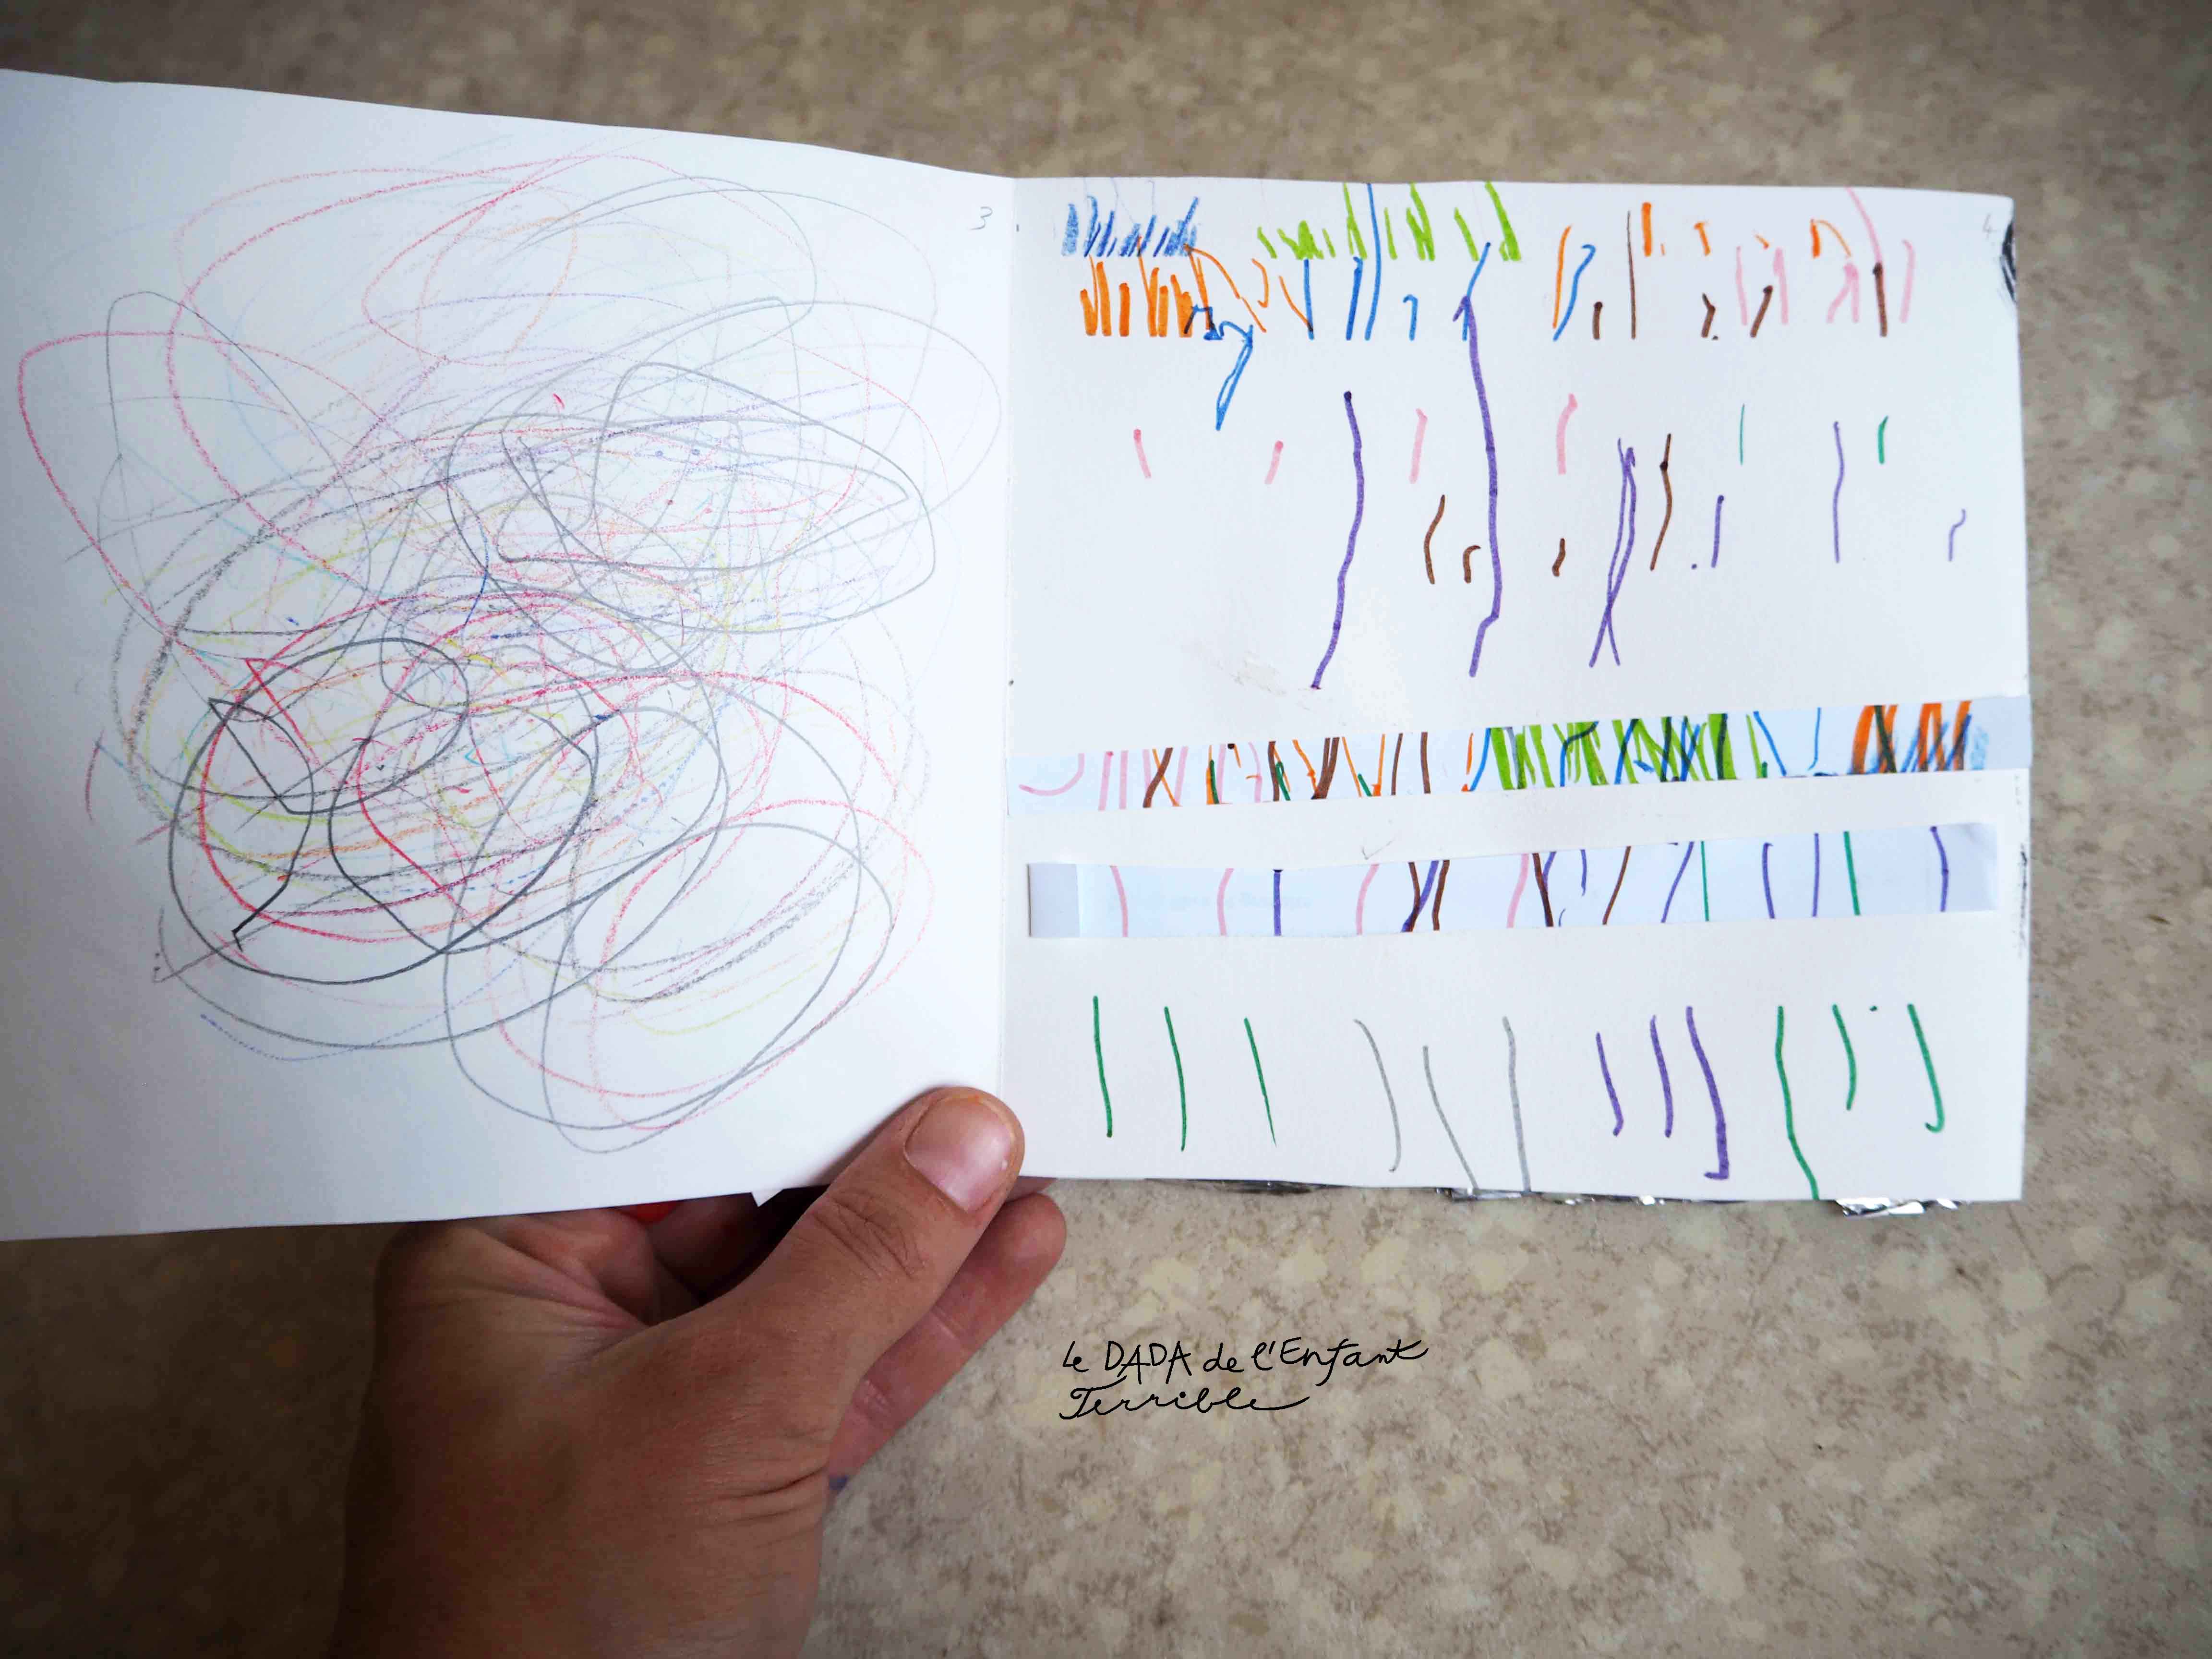 3
4
Le DADA de l'Enfant
Terrible